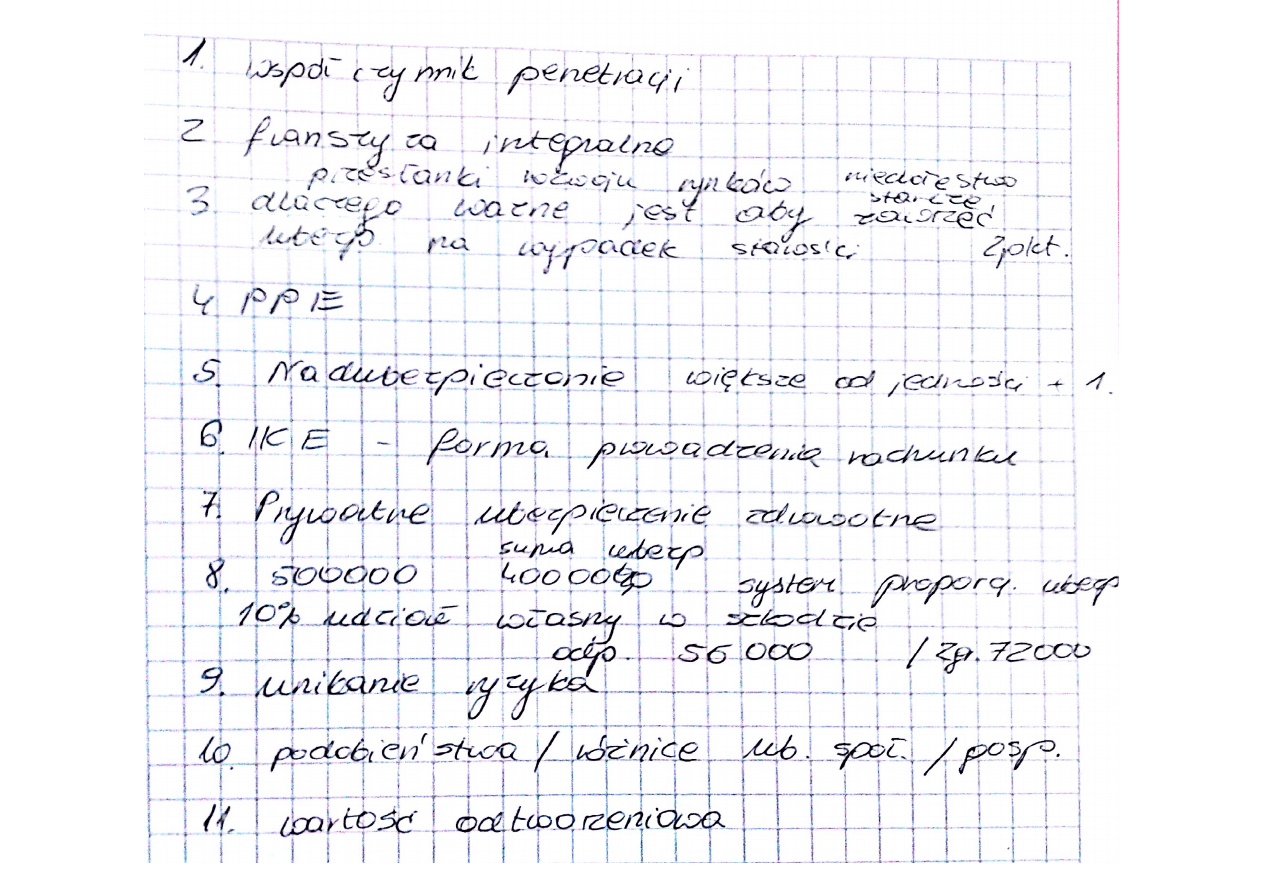 1. współczynnik penetracji
2 franszyza integralna
przesłanki rozwoju rynków niedołęstwo
starcze
3. dlaczego ważne jest aby zawrzeć
ubezp. na wypadek starości 2pkt.
4 PPE
5. Nadubezpieczenie większe od jedności + 1.
6. IKE - forma prowadzenia rachunku
7. Prywatne ubezpieczenie zdrowotne
suma ubezp
8. 500000 400000 system proporcj. ubezp
10% udział własny w szkodzie
odp. 56 000 / zg. 72000
9. unikanie ryzyka
10. podobieństwa / różnice ub. społ. / gosp.
11. wartość odtworzeniowa